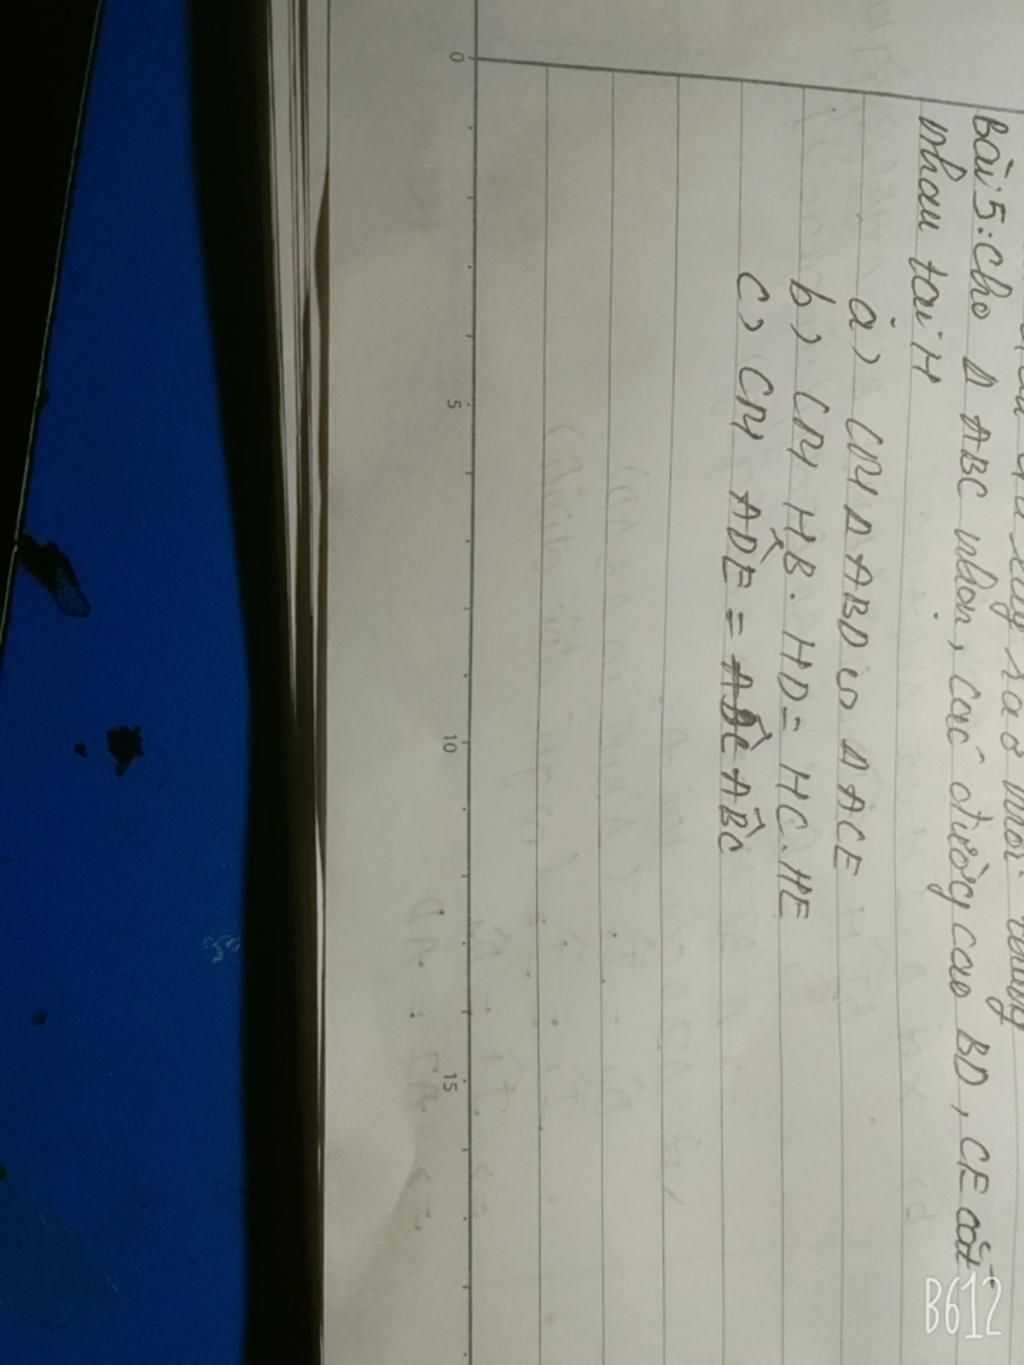 sao
Bài 5: Cho Δ ABC nhọn, các đường cao BD, CE cắt
nhau tại H
a) CM Δ ABD ∽ Δ ACE
b) CM HB. HD = HC. HE
c) CM AD̂E = AB̂C
0 5 10 15
B612